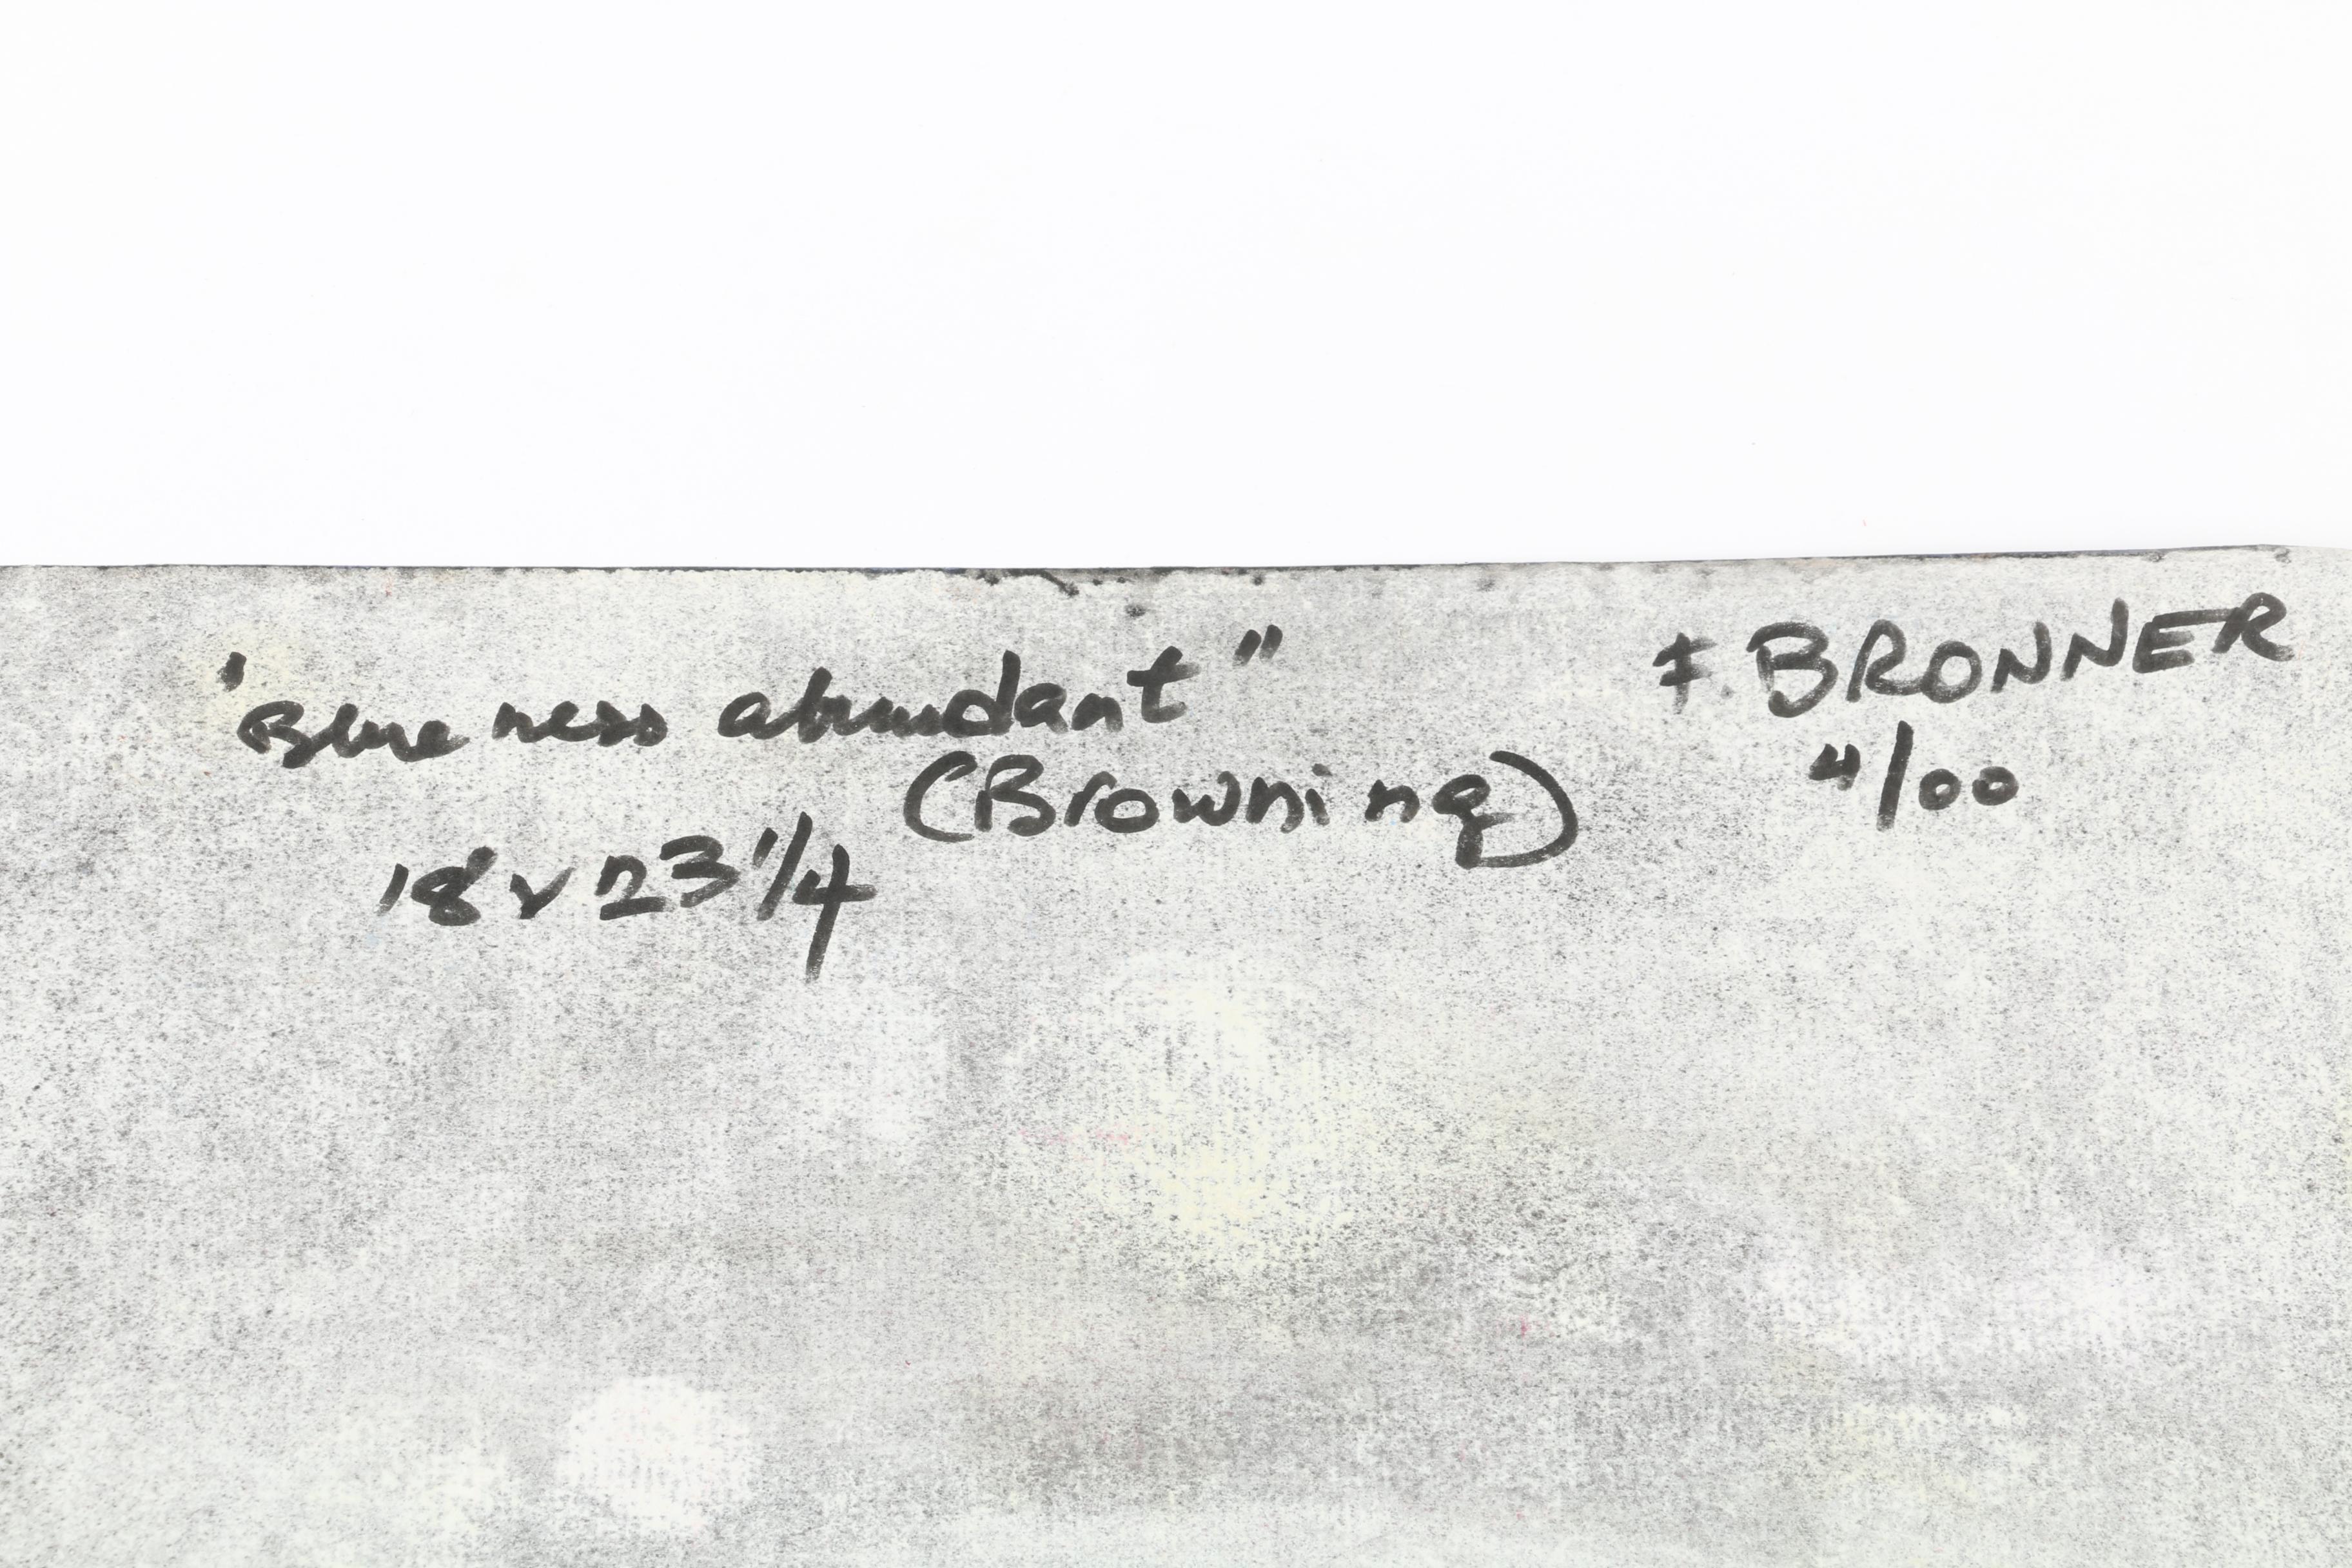 'Blueness abundant"
(Browning)
18 x 23 1/4
F. BRONNER
4/00